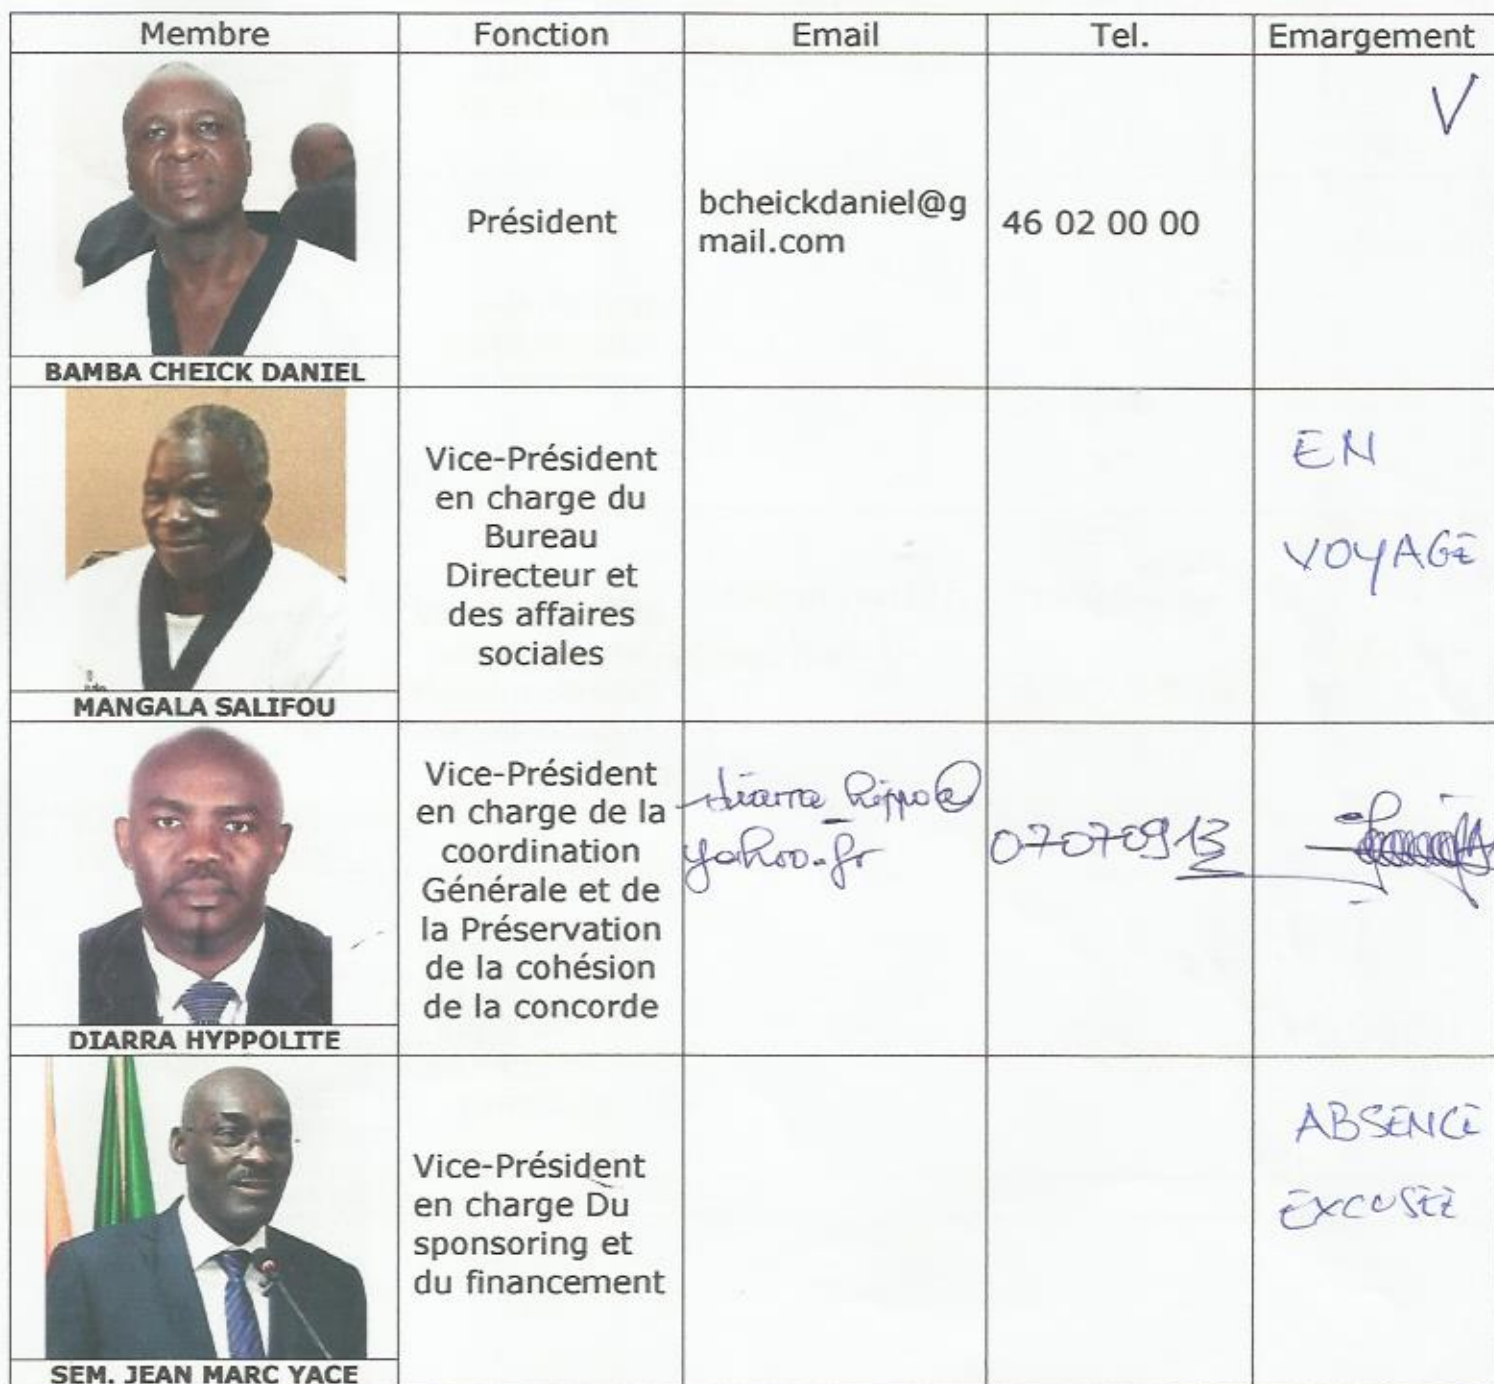 Membre Fonction Email Tel. Emargement
V
Président
bcheickdaniel@g
mail.com
46 02 00 00
BAMBA CHEICK DANIEL
Vice-Président
en charge du
Bureau
Directeur et
des affaires
sociales
EN
VOYAGE
MANGALA SALIFOU
Vice-Président
en charge de la
coordination
Générale et de
la Préservation
de la cohésion
de la concorde
diarra_hippo@
yahoo.fr
07070913
DIARRA HYPPOLITE
Vice-Président
en charge Du
sponsoring et
du financement
ABSENCE
EXCUSEE
SEM. JEAN MARC YACE